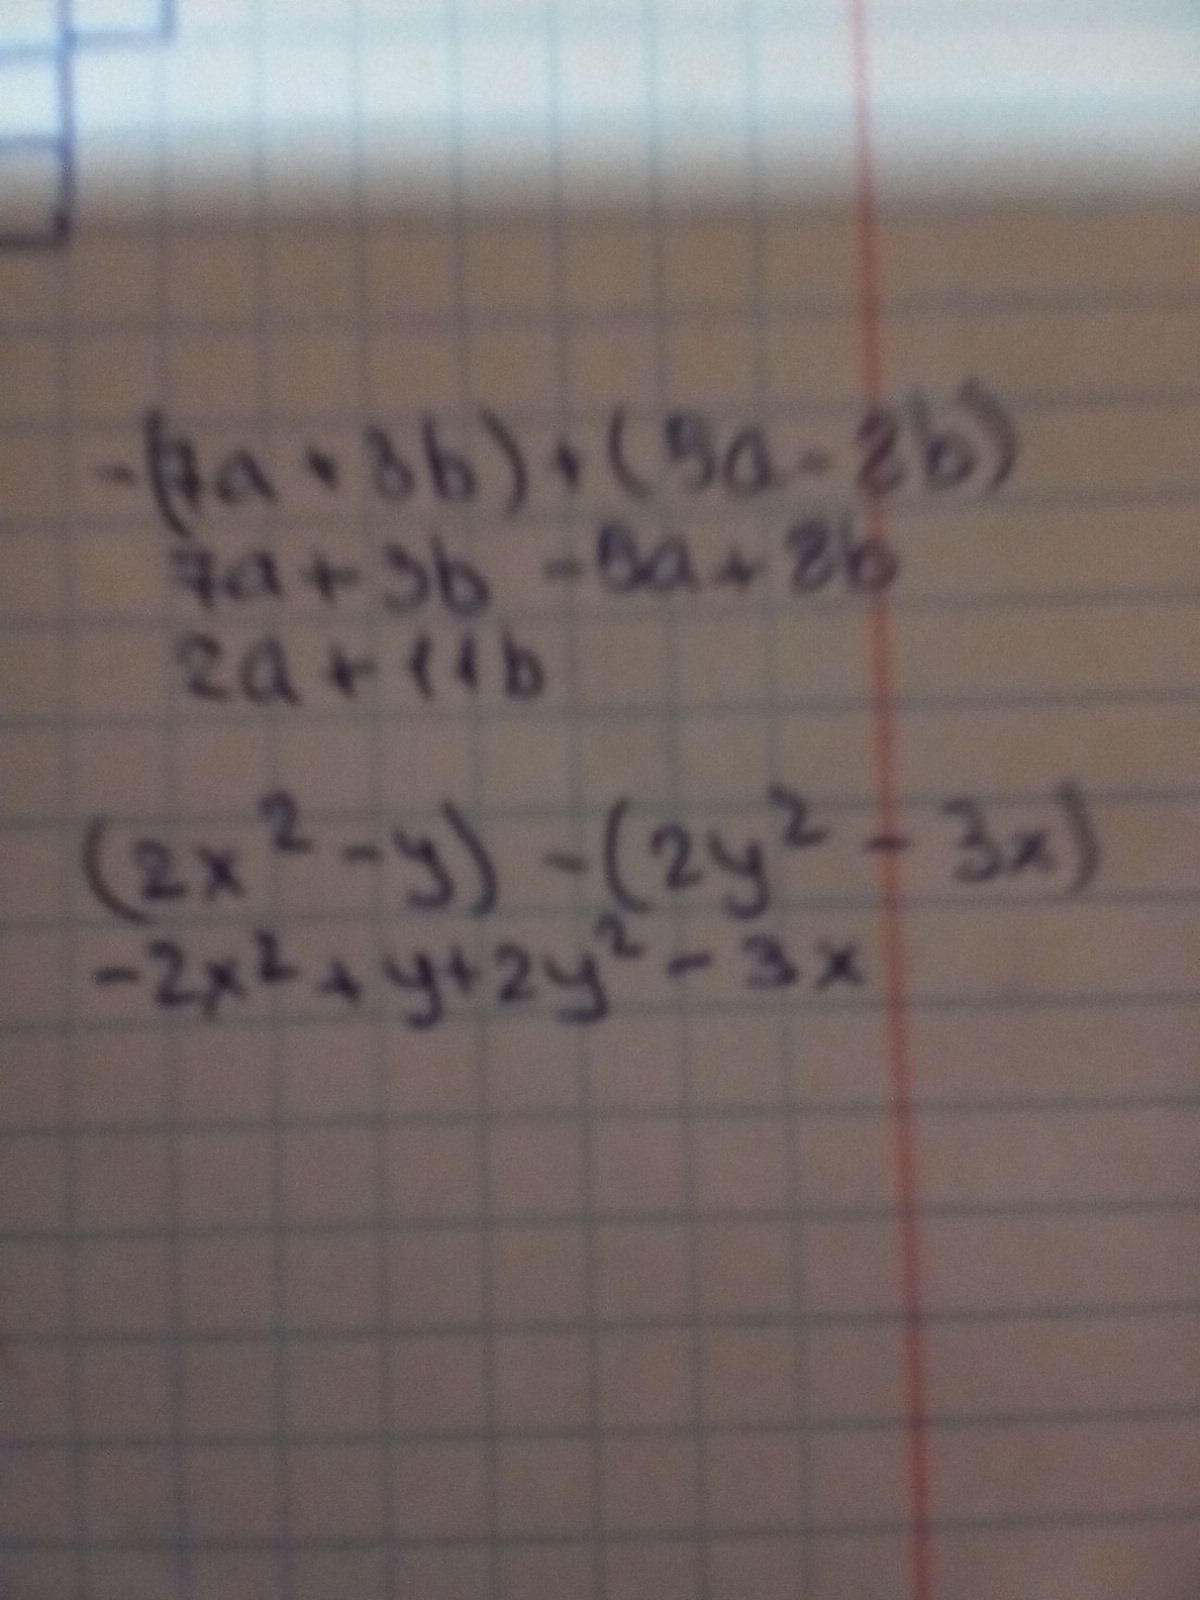 -(7a + 3b) + (5a - 8b)
7a + 3b - 5a + 8b
2a + 11b
(2x² - y) - (2y² - 3x)
-2x² + y + 2y² - 3x